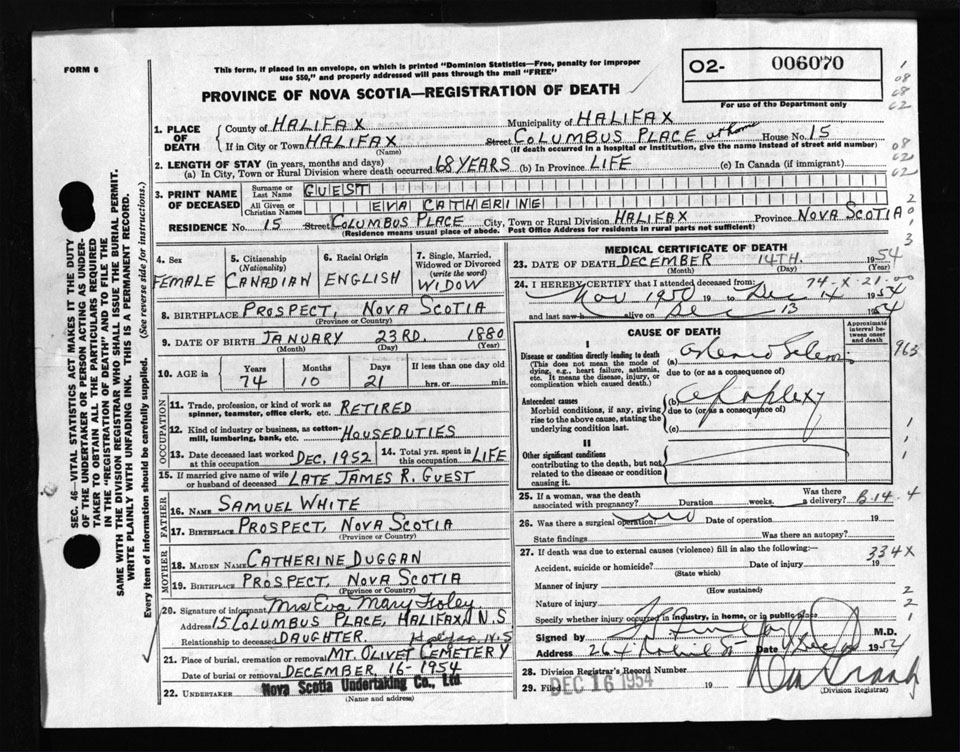 FORM 6
This form, if placed in an envelope, on which is printed "Dominion Statistics—Free, penalty for improper
use $50," and properly addressed will pass through the mail "FREE"
O2- 006070
For use of the Department only
PROVINCE OF NOVA SCOTIA—REGISTRATION OF DEATH
1. PLACE OF DEATH
County of HALIFAX Municipality of HALIFAX
If in City or Town HALIFAX (Name) Street COLUMBUS PLACE at home House No. 15
(If death occurred in a hospital or institution, give the name instead of street and number)
2. LENGTH OF STAY (in years, months and days)
(a) In City, Town or Rural Division where death occurred 68 YEARS (b) In Province LIFE (c) In Canada (if immigrant)
3. PRINT NAME OF DECEASED
Surname or Last Name GUEST
All Given or Christian Names EVA CATHERINE
RESIDENCE No. 15 Street COLUMBUS PLACE City, Town or Rural Division HALIFAX Province NOVA SCOTIA
(Residence means usual place of abode. Post Office Address for residents in rural parts not sufficient)
4. Sex FEMALE
5. Citizenship (Nationality) CANADIAN
6. Racial Origin ENGLISH
7. Single, Married, Widowed or Divorced (write the word) WIDOW
8. BIRTHPLACE PROSPECT, NOVA SCOTIA
(Province or Country)
9. DATE OF BIRTH JANUARY 23RD. 1880
(Month) (Day) (Year)
10. AGE in Years 74 Months 10 Days 21 If less than one day old hrs. or min.
OCCUPATION
11. Trade, profession, or kind of work as spinner, teamster, office clerk, etc. RETIRED
12. Kind of industry or business, as cotton-mill, lumbering, bank, etc. HOUSEDUTIES
13. Date deceased last worked at this occupation DEC, 1952 14. Total yrs. spent in this occupation LIFE
15. If married give name of wife or husband of deceased LATE JAMES R. GUEST
FATHER
16. NAME SAMUEL WHITE
17. BIRTHPLACE PROSPECT, NOVA SCOTIA
(Province or Country)
MOTHER
18. MAIDEN NAME CATHERINE DUGGAN
19. BIRTHPLACE PROSPECT, NOVA SCOTIA
(Province or Country)
20. Signature of informant Mrs Eva Mary
Address 15 COLUMBUS PLACE, HALIFAX, N.S
Relationship to deceased DAUGHTER. Halifax, N.S
21. Place of burial, cremation or removal MT. OLIVET CEMETERY
Date of burial or removal DECEMBER, 16-1954
22. UNDERTAKER Nova Scotia Undertaking Co., Ltd
(Name and address)
MEDICAL CERTIFICATE OF DEATH
23. DATE OF DEATH DECEMBER 14TH. 1954
(Month) (Day) (Year)
24. I HEREBY CERTIFY that I attended deceased from: 74-X-21
Nov 1950 19 to Dec 14 1954
and last saw h alive on Dec 13 1954
CAUSE OF DEATH
Approximate interval between onset and death
I
Disease or condition directly leading to death
(This does not mean the mode of dying, e.g., heart failure, asthenia, etc. It means the disease, injury, or complication which caused death.)
(a)
due to (or as a consequence of)
963
Antecedent causes
Morbid conditions, if any, giving rise to the above cause, stating the underlying condition last.
(b) apoplexy
due to (or as a consequence of)
(c)
II
Other significant conditions
contributing to the death, but not related to the disease or condition causing it.
25. If a woman, was the death associated with pregnancy? Duration weeks. Was there a delivery? B-14-4
26. Was there a surgical operation? no Date of operation 19
State findings Was there an autopsy?
27. If death was due to external causes (violence) fill in also the following:— 334X
Accident, suicide or homicide? Date of injury 19
(State which)
Manner of injury
(How sustained)
Nature of injury
Specify whether injury occurred in industry, in home, or in public place
Signed by M.D.
Address Date 1954
28. Division Registrar's Record Number
29. Filed DEC 16 1954 19
(Division Registrar)
SEC. 46—VITAL STATISTICS ACT MAKES IT THE DUTY
OF THE UNDERTAKER OR PERSON ACTING AS UNDER-
TAKER TO OBTAIN ALL THE PARTICULARS REQUIRED
IN THE "REGISTRATION OF DEATH" AND TO FILE THE
SAME WITH THE DIVISION REGISTRAR WHO SHALL ISSUE THE BURIAL PERMIT.
WRITE PLAINLY WITH UNFADING INK. THIS IS A PERMANENT RECORD.
Every item of information should be carefully supplied. (See reverse side for instructions.)